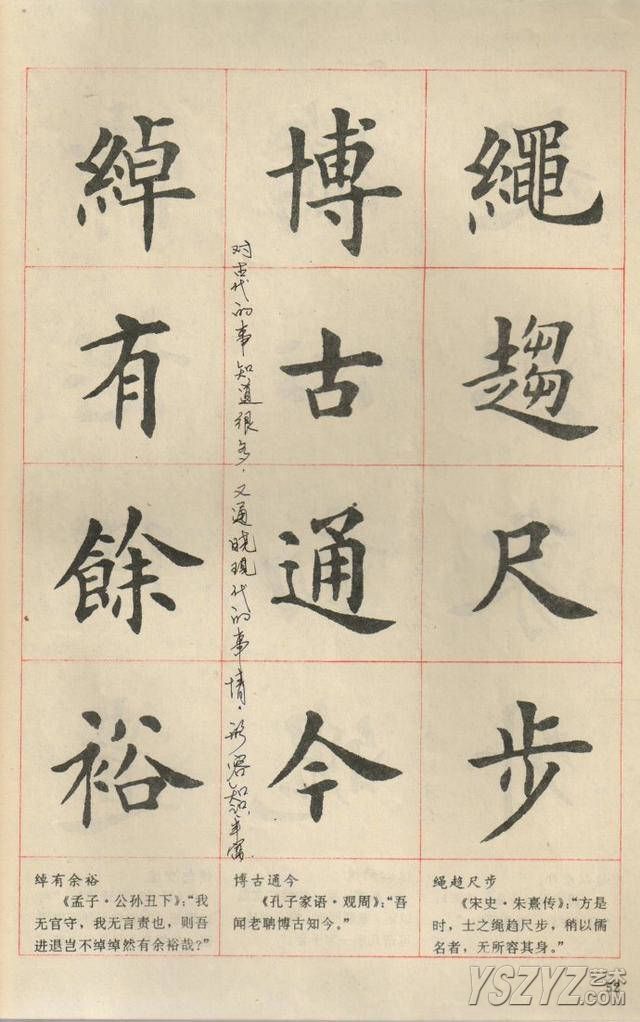 繩趨尺步
博古通今
对古代的事知道很多，又通晓现代的事情，形容知识丰富
綽有餘裕
绳趋尺步
《宋史·朱熹传》：“方是
时，士之绳趋尺步，稍以儒
名者，无所容其身。”
博古通今
《孔子家语·观周》：“吾
闻老聃博古知今。”
绰有余裕
《孟子·公孙丑下》：“我
无官守，我无言责也，则吾
进退岂不绰绰然有余裕哉？”
52
YSZYZ 艺术
.com